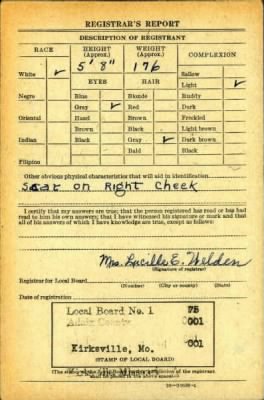 REGISTRAR'S REPORT
DESCRIPTION OF REGISTRANT
RACE HEIGHT (Approx.) WEIGHT (Approx.) COMPLEXION
5' 8" 176 Sallow
White ✓ EYES HAIR Light ✓
Negro Blue Blonde Ruddy
Gray ✓ Red Dark
Oriental Hazel Brown Freckled
Brown Black Light brown
Indian Black Gray ✓ Dark brown
Bald Black
Filipino
Other obvious physical characteristics that will aid in identification
Scar on Right Cheek
I certify that my answers are true; that the person registered has read or has had
read to him his own answers; that I have witnessed his signature or mark and that
all of his answers of which I have knowledge are true, except as follows:
Mrs. Lucille E. Welden
(Signature of registrar)
Registrar for Local Board
(Number) (City or county) (State)
Date of registration
Local Board No. 1 75
Adair County 001
Kirksville, Mo. 001
(STAMP OF LOCAL BOARD)